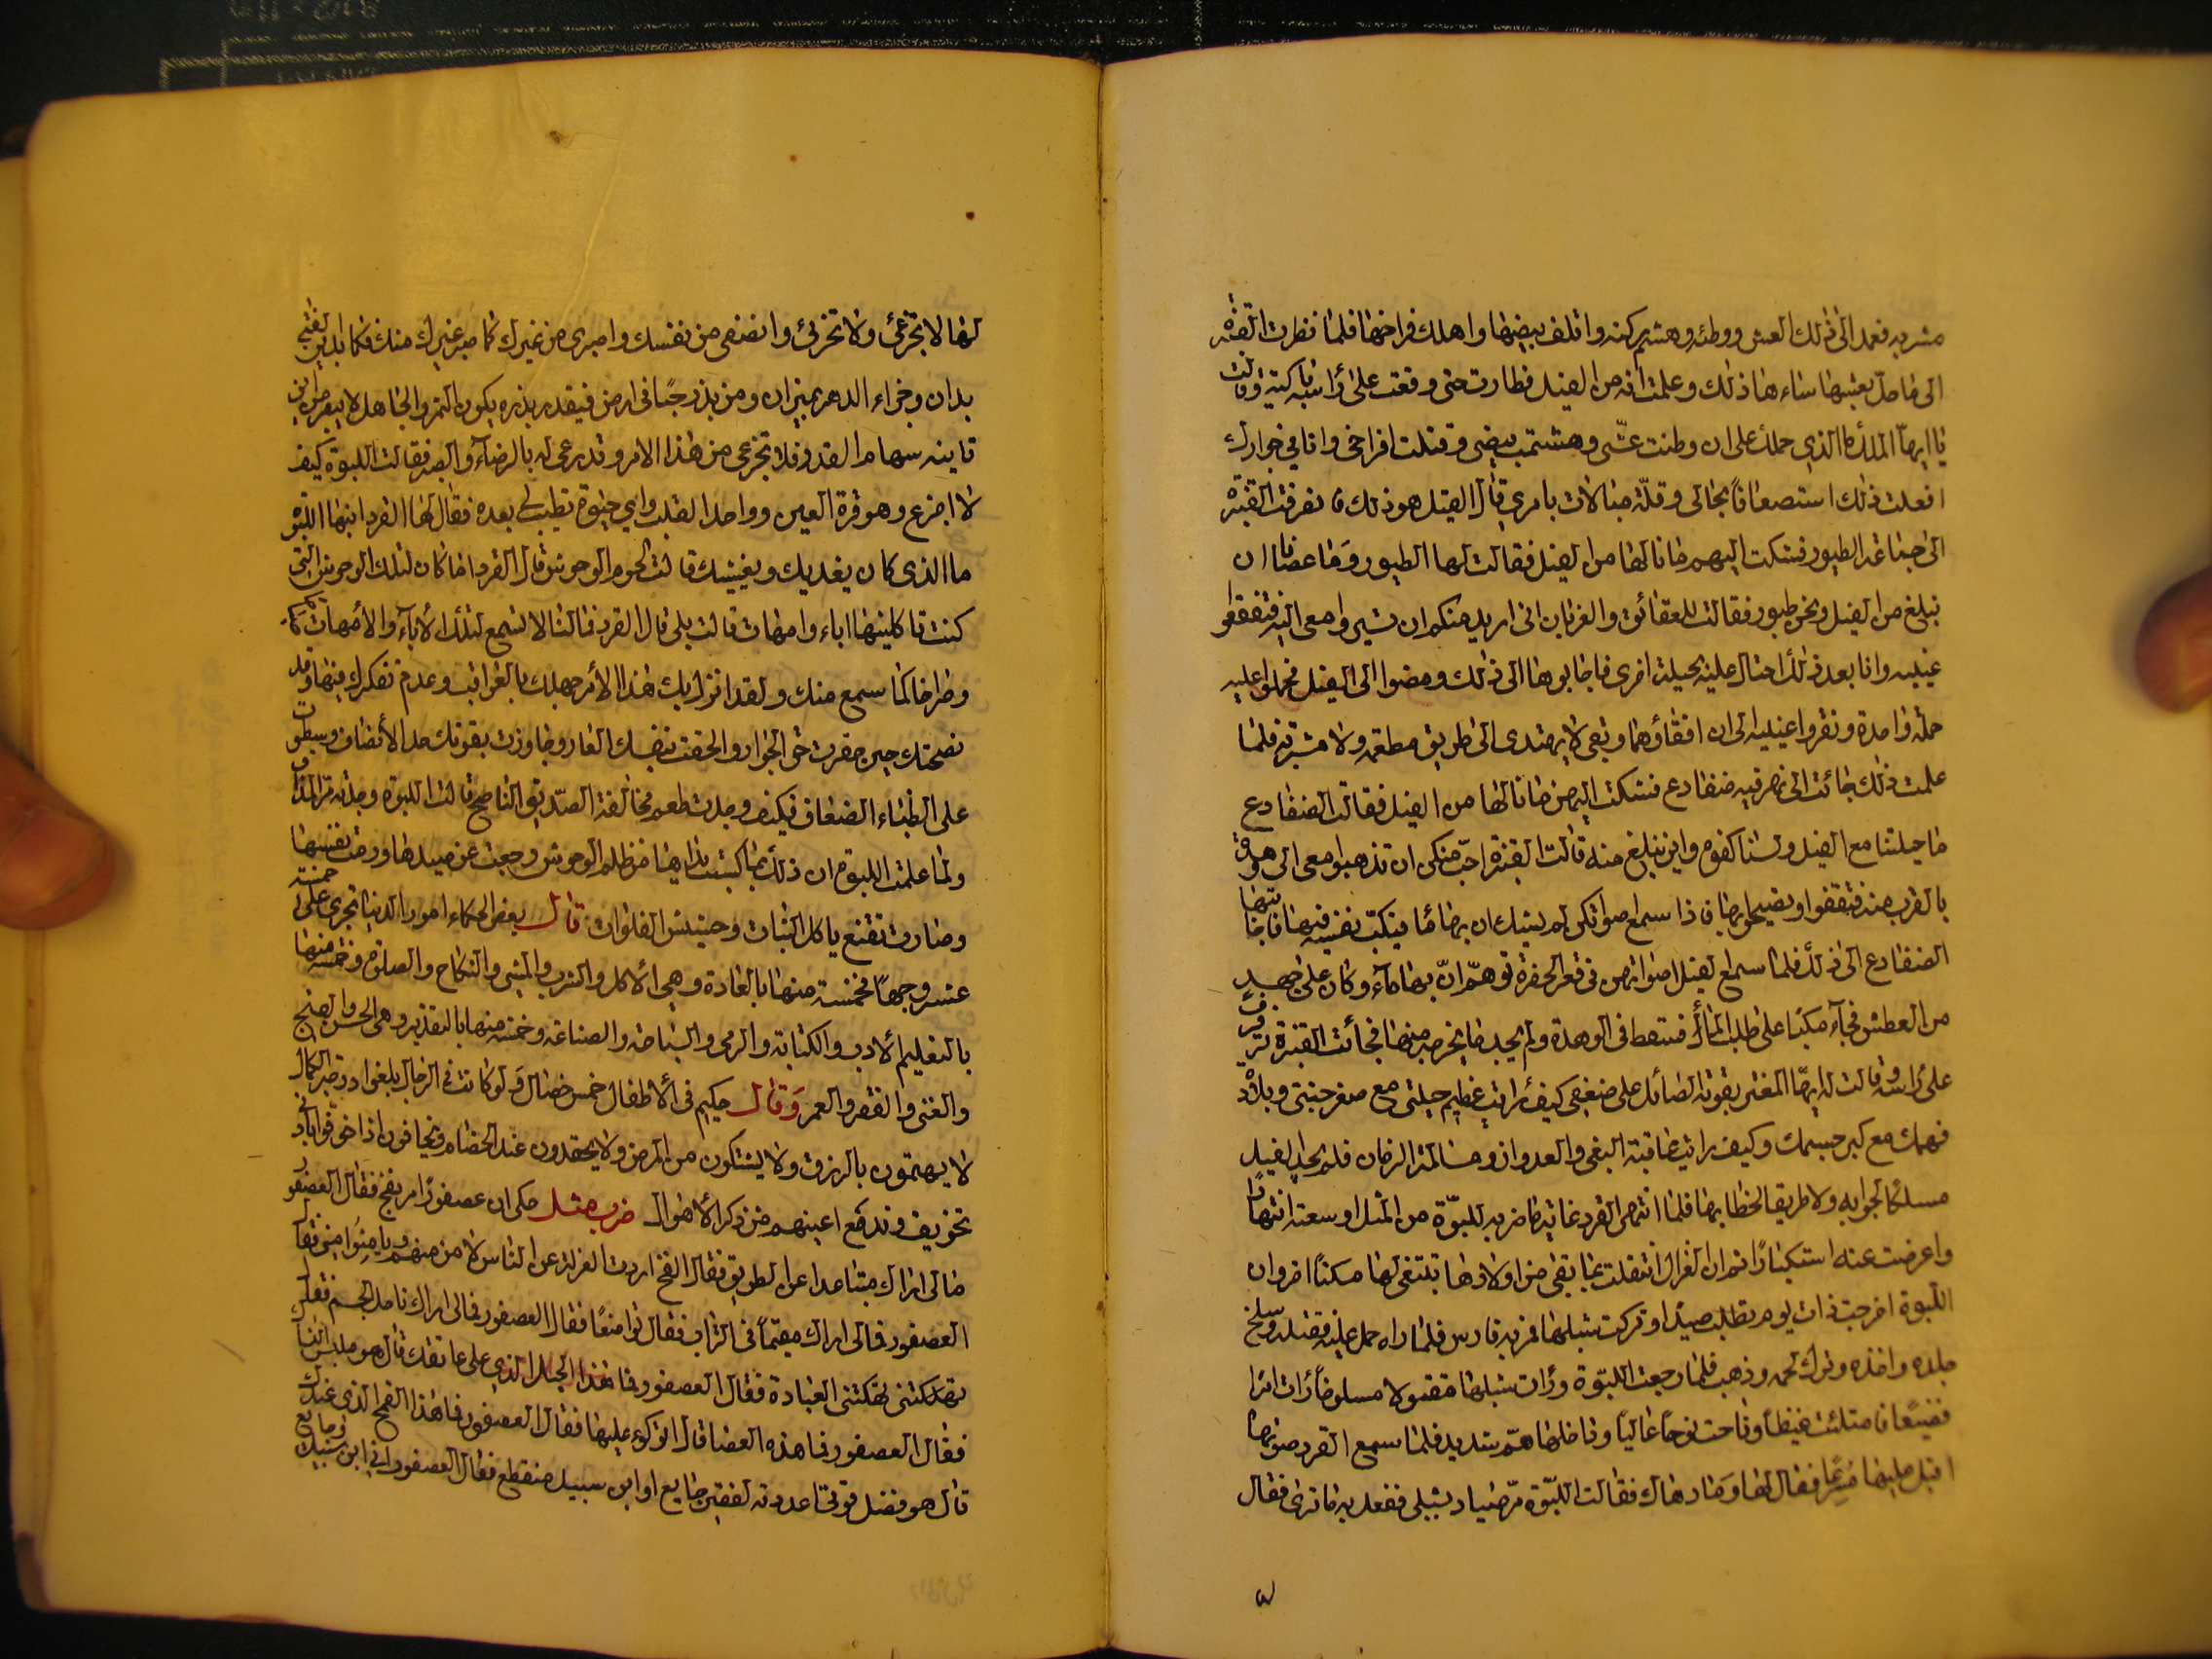 مشربه فعمد الى ذلك العش ووطئه وهشم ركنه واتلف بيضها واهلك فراخها فلما نظرت القنبره
الى ما حل بعشها ساءها ذلك وعلمت انه من الفيل فطارت حتى وقعت على راسه باكية وقالت
يا ايها الملك ما الذي حملك على ان وطئت عشي وهشمت بيضي وقتلت افراخي وانا في جوارك
افعلت ذلك استضعافا بحالي وقلة مبالات بامري قال الفيل هو ذلك فانصرفت القنبرة
الى جماعة الطيور فشكت اليهم ما نالها من الفيل فقالت لها الطيور وما عسانا ان
نبلغ من الفيل ونحن طيور فقالت للعقائق والغربان اني اريد منكم ان تسيروا معي اليه فتفقوا
عينيه وانا بعد ذلك احتال عليه بحيلة اخرى فاجابوها الى ذلك ومضوا الى الفيل فحملوا عليه
حملة واحدة ونقروا عينيه الى ان افقاؤهما وبقي لا يهتدي الى طريق مطعمه ولا مشربه فلما
علمت ذلك جائت الى نهر فيه ضفادع فشكت اليهن ما نالها من الفيل فقالت الضفادع
ما حيلتنا مع الفيل ولسنا كفوه واين نبلغ منه قالت القنبرة احب منكن ان تذهبوا معي الى وهدة
بالقرب منه فتنقوا وتضجوا بها فاذا سمع اصواتكن لم يشك ان بها ماء فيكب نفسه فيها فاجابتها
الضفادع الى ذلك فلما سمع الفيل اصواتهن في قعر الحفرة توهم ان بها ماء وكان على جهد
من العطش فجاء مكبا على طلب الماء فسقط في الوهدة ولم يجد ما يخرجه منها فجائت القنبرة ترفرف
على راسه وقالت له ايها المغتر بقوته الصائل على ضعفي كيف رايت عظيم حيلتي مع صغر جثتي وبلادة
فهمك مع كبر جسمك وكيف رايت عاقبة البغي والعدوان ومسالمة الزمان فلم يجد الفيل
مسلكا لجوابه ولا طريقا لخطابها فلما انتهى القرد غاية ما ضربه للبوة من المثل اوسعته انتهارا
واعرضت عنه استكبارا ثم ان الغزال انتقلت بما بقي من اولادها تبتغي لها مسكنا اخر وان
اللبوة خرجت ذات يوم تطلب صيدا وتركت شبلها فمر به فارس فلما راه حمل عليه فقتله وسلخ
جلده واخذه وترك لحمه وذهب فلما رجعت اللبوة ورات شبلها مقتولا مسلوخا رات امرا
فضيعا فامتلئت غيظا وناحت نوحا عاليا وداخلها هم شديد فلما سمع القرد صوتها
اقبل عليها مسرعا فقال لها وما دهاك فقالت اللبوة مر صياد بشبلي ففعل به ما ترى فقال
لها لا تجزعي ولا تحزني وانصفي من نفسك واصبري من غيرك كما صبر غيرك منك فكما يدين الفتى
يدان وجزاء الدهر بميزان ومن بذر حبا في ارض فبقدر بذره يكون الثمر والجاهل لا يبصر من اين
تاتيه سهام القدر فلا تجزعي من هذا الامر وتدرعي له بالرضاء والصبر فقالت اللبوة كيف
لا اجزع وهو قرة العين وواحد القلب واي حيوة تطيب لي بعده فقال لها القرد ايتها اللبوة
ما الذي كان يغديك ويعيشك قالت لحوم الوحوش قال القرد اما كان لتلك الوحوش التي
كنت تاكلينها اباء وامهات قالت بلى قال القرد فما لنا لا نسمع لتلك الاباء والامهات بكاء
وصراخا كما سمع منك ولقد انزل بك هذا الامر جهلك بالعواقب وعدم تفكرك فيها وقد
نصحتك حين حقرت حق الجوار والحقت بنفسك العار وجاوزت بقوتك حد الانصاف وسطوت
على الظباء الضعاف فكيف وجدت طعم مخالفة الصديق الناصح قالت اللبوة وجدته مر المذاق
ولما علمت اللبوة ان ذلك بما كسبت يداها من ظلم الوحوش رجعت عن صيدها ورمت نفسها
وصارت تقنع باكل النبات وحشيش الفلوات قال بعض الحكماء امور الدنيا تجري على خمسة
عشر وجها فخمسة منها بالعادة وهي الاكل والشرب والمشي والنكاح والصلوة وخمسة منها
بالتعليم الادب والكتابة والرمي والسباحة والصناعة وخمسة منها بالتقدير وهي الحسن والقبح
والغنى والفقر والعمر وقال حكيم في الاطفال خمس خصال لو كانت في الرجال بلغوا درجة الكمال
لا يهتمون بالرزق ولا يشتكون من المرض ولا يحقدون عند الخصام ويخافون اذا خوفوا بادنى
تخويف وتدمع اعينهم من ذكر الاهوال ضرب مثل حكي ان عصفورا مر بفخ فقال العصفور
مالي اراك متباعدا عن الطريق فقال الفخ اردت العزلة عن الناس لامن منهم ويامنوا مني فقال
العصفور فمالي اراك مقيما في التراب فقال تواضعا فقال العصفور فمالي اراك ناحل الجسم فقال
نهكتني العبادة فقال العصفور فما هذا الحبل الذي على عاتقك قال هو ملبس النساك
فقال العصفور فما هذه العصا قال اتوكؤ عليها فقال العصفور فما هذا القمح الذي عندك
قال هو فضل قوتي اعددته لفقير جايع او ابن سبيل منقطع فقال العصفور اني ابن سبيل وجايع